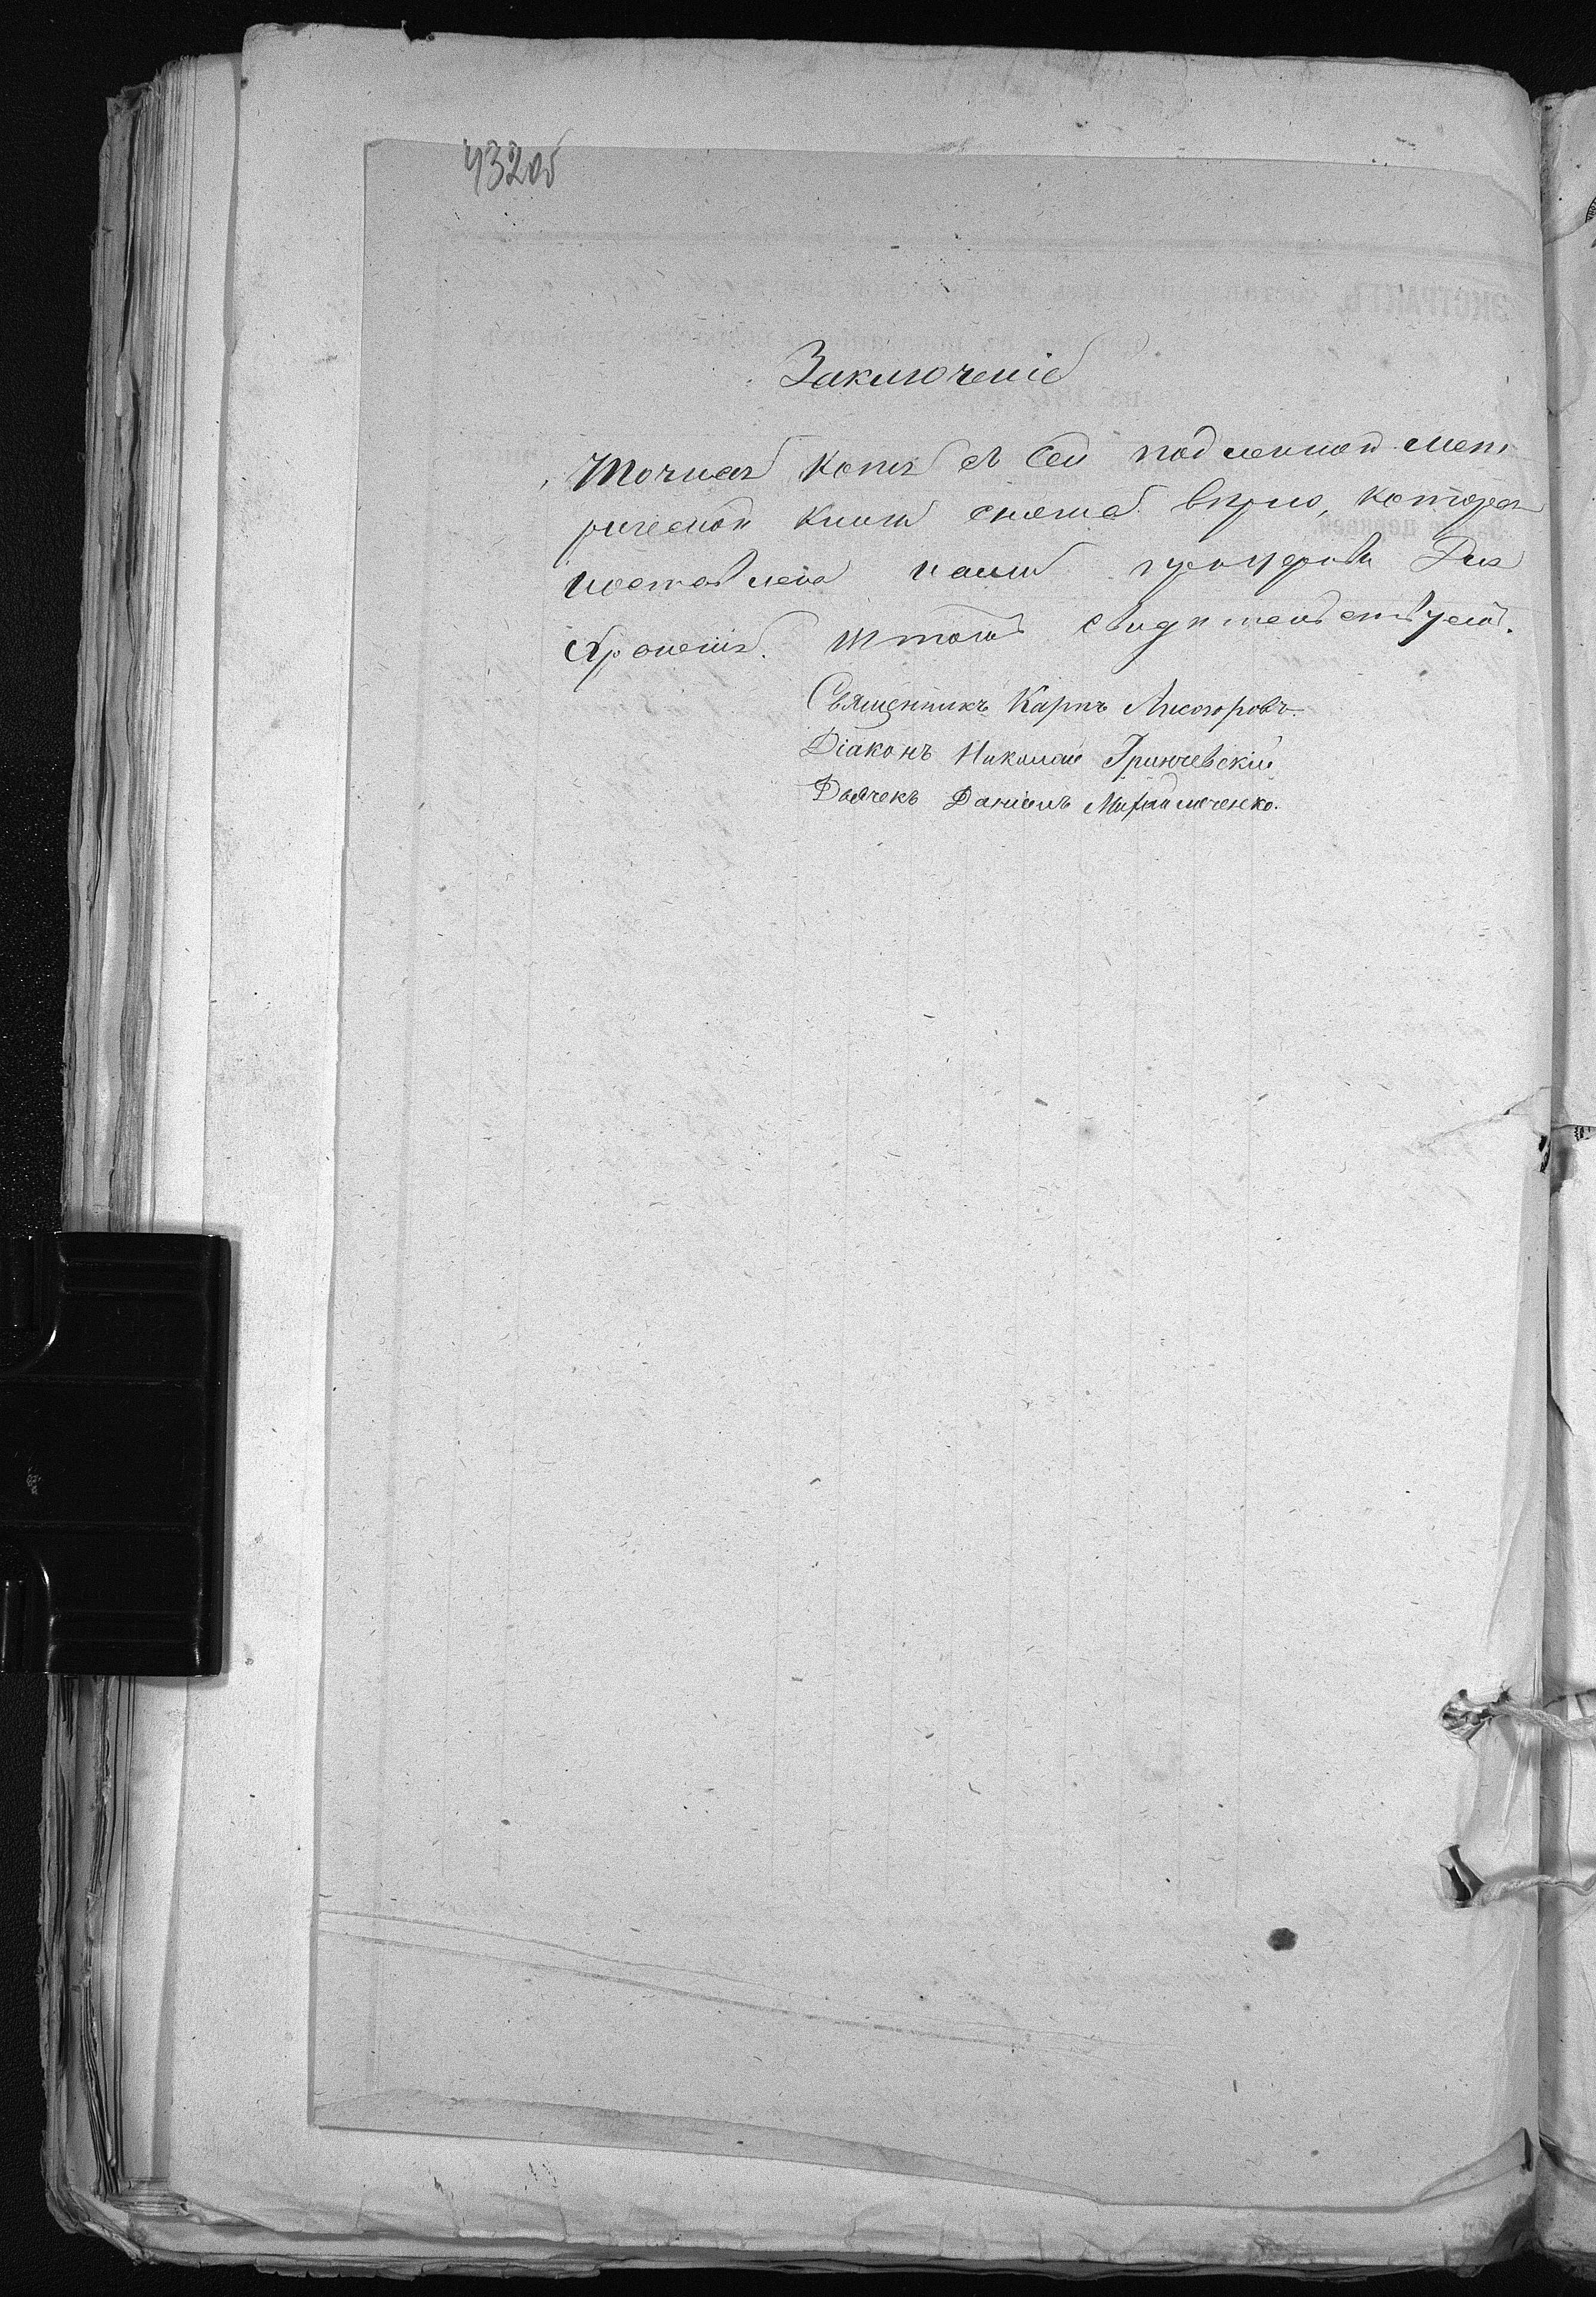 432об
Заключеніе
Точная копія съ сей подленной мет
рической книги снята вѣрно, которая
поставлена нами церкви Для
Храненія. Въ томъ свидѣтельствуемъ.
Священникъ Карпъ Лисогоровъ.
Діаконъ Николай Гринчевскій
Дьячекъ Даніилъ Михайличенко.